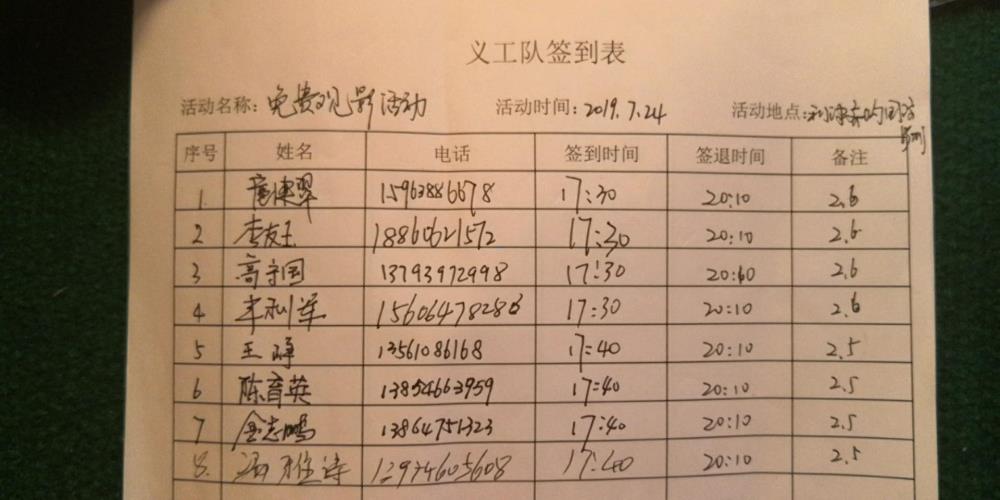 义工队签到表
活动名称: 免费观影活动 活动时间: 2019.7.24 活动地点:
序号 姓名 电话 签到时间 签退时间 备注
1 15963886678 17:30 20:10 2.6
2 李友玉 18860621572 17:30 20:10 2.6
3 高守国 13793972998 17:30 20:10 2.6
4 丰利军 15606478286 17:30 20:10 2.6
5 王峥 13561086168 17:40 20:10 2.5
6 陈育英 13854663959 17:40 20:10 2.5
7 金志鹏 13864751323 17:40 20:10 2.5
8. 雅诗 17:40 20:10 2.5